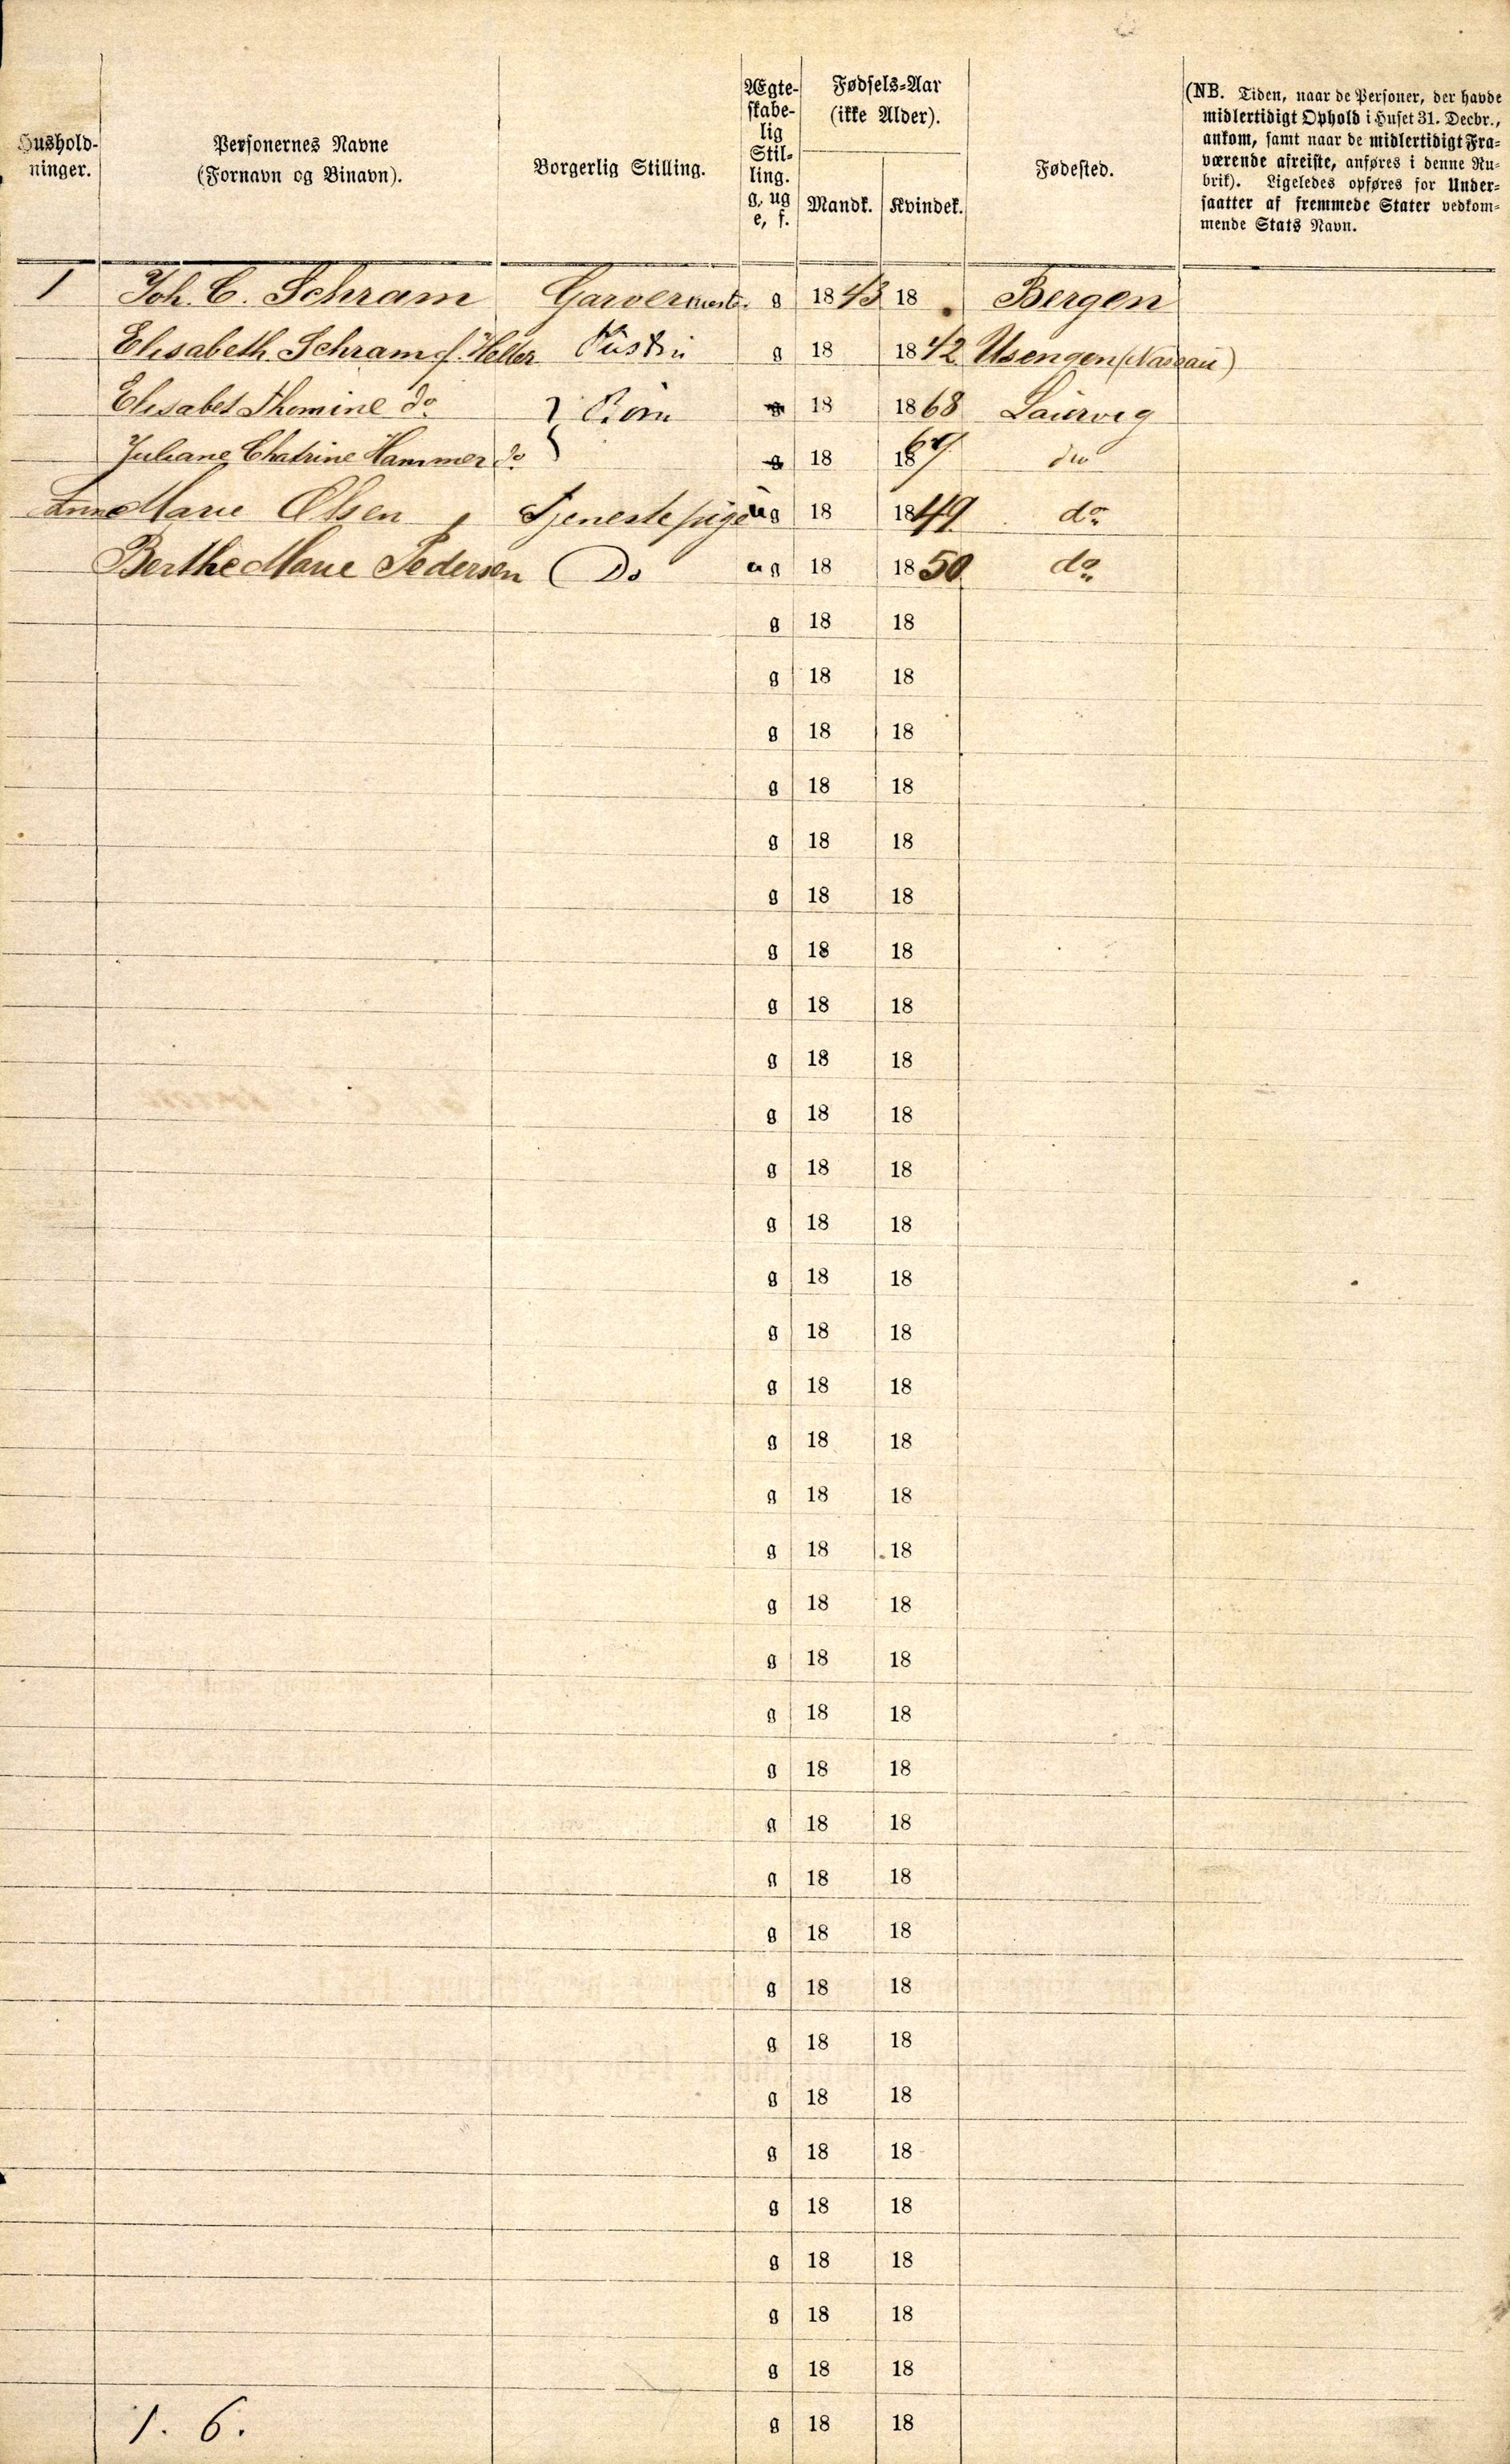 Hushold-
ninger.
Personernes Navne
(Fornavn og Binavn).
Borgerlig Stilling.
Ægte-
skabe-
lig
Stil-
ling.
g, ug
e, f.
Fødsels-Aar
(ikke Alder).
Mandk. Kvindek.
Fødested.
(NB. Tiden, naar de Personer, der havde
midlertidigt Ophold i Huset 31. Decbr.,
ankom, samt naar de midlertidigt Fra-
værende afreiste, anføres i denne Ru-
brik). Ligeledes opføres for Under-
saatter af fremmede Stater vedkom-
mende Stats Navn.
1 Joh. C. Schram Garvermest. g 1843 18 Bergen
Elisabeth Schram f. Heller Hustru g 18 1842 Usengen (Nassau)
Elisabet Thomine do } Børn g 18 1868 Laurvig
Juliane Chatrine Hammer do g 18 1869 do
Anne Marie Olsen Tjenestepige ug 18 1849 do
Berthe Marie Pedersen Do ug 18 1850 do
g 18 18
g 18 18
g 18 18
g 18 18
g 18 18
g 18 18
g 18 18
g 18 18
g 18 18
g 18 18
g 18 18
g 18 18
g 18 18
g 18 18
g 18 18
g 18 18
g 18 18
g 18 18
g 18 18
g 18 18
g 18 18
g 18 18
g 18 18
g 18 18
g 18 18
g 18 18
g 18 18
g 18 18
g 18 18
g 18 18
g 18 18
g 18 18
g 18 18
1. 6. g 18 18